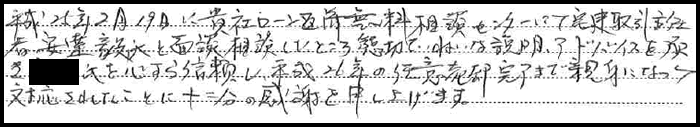 平成26年2月19日に貴社ローン返済無料相談センターにて宅建取引主任
者安達毅氏と面談相談したところ懇切ていねいな説明、アドバイスを頂
き 氏を心から信頼し、平成26年の任意売却完了まで親身になって
対応されたことに十二分の感謝を申し上げます。